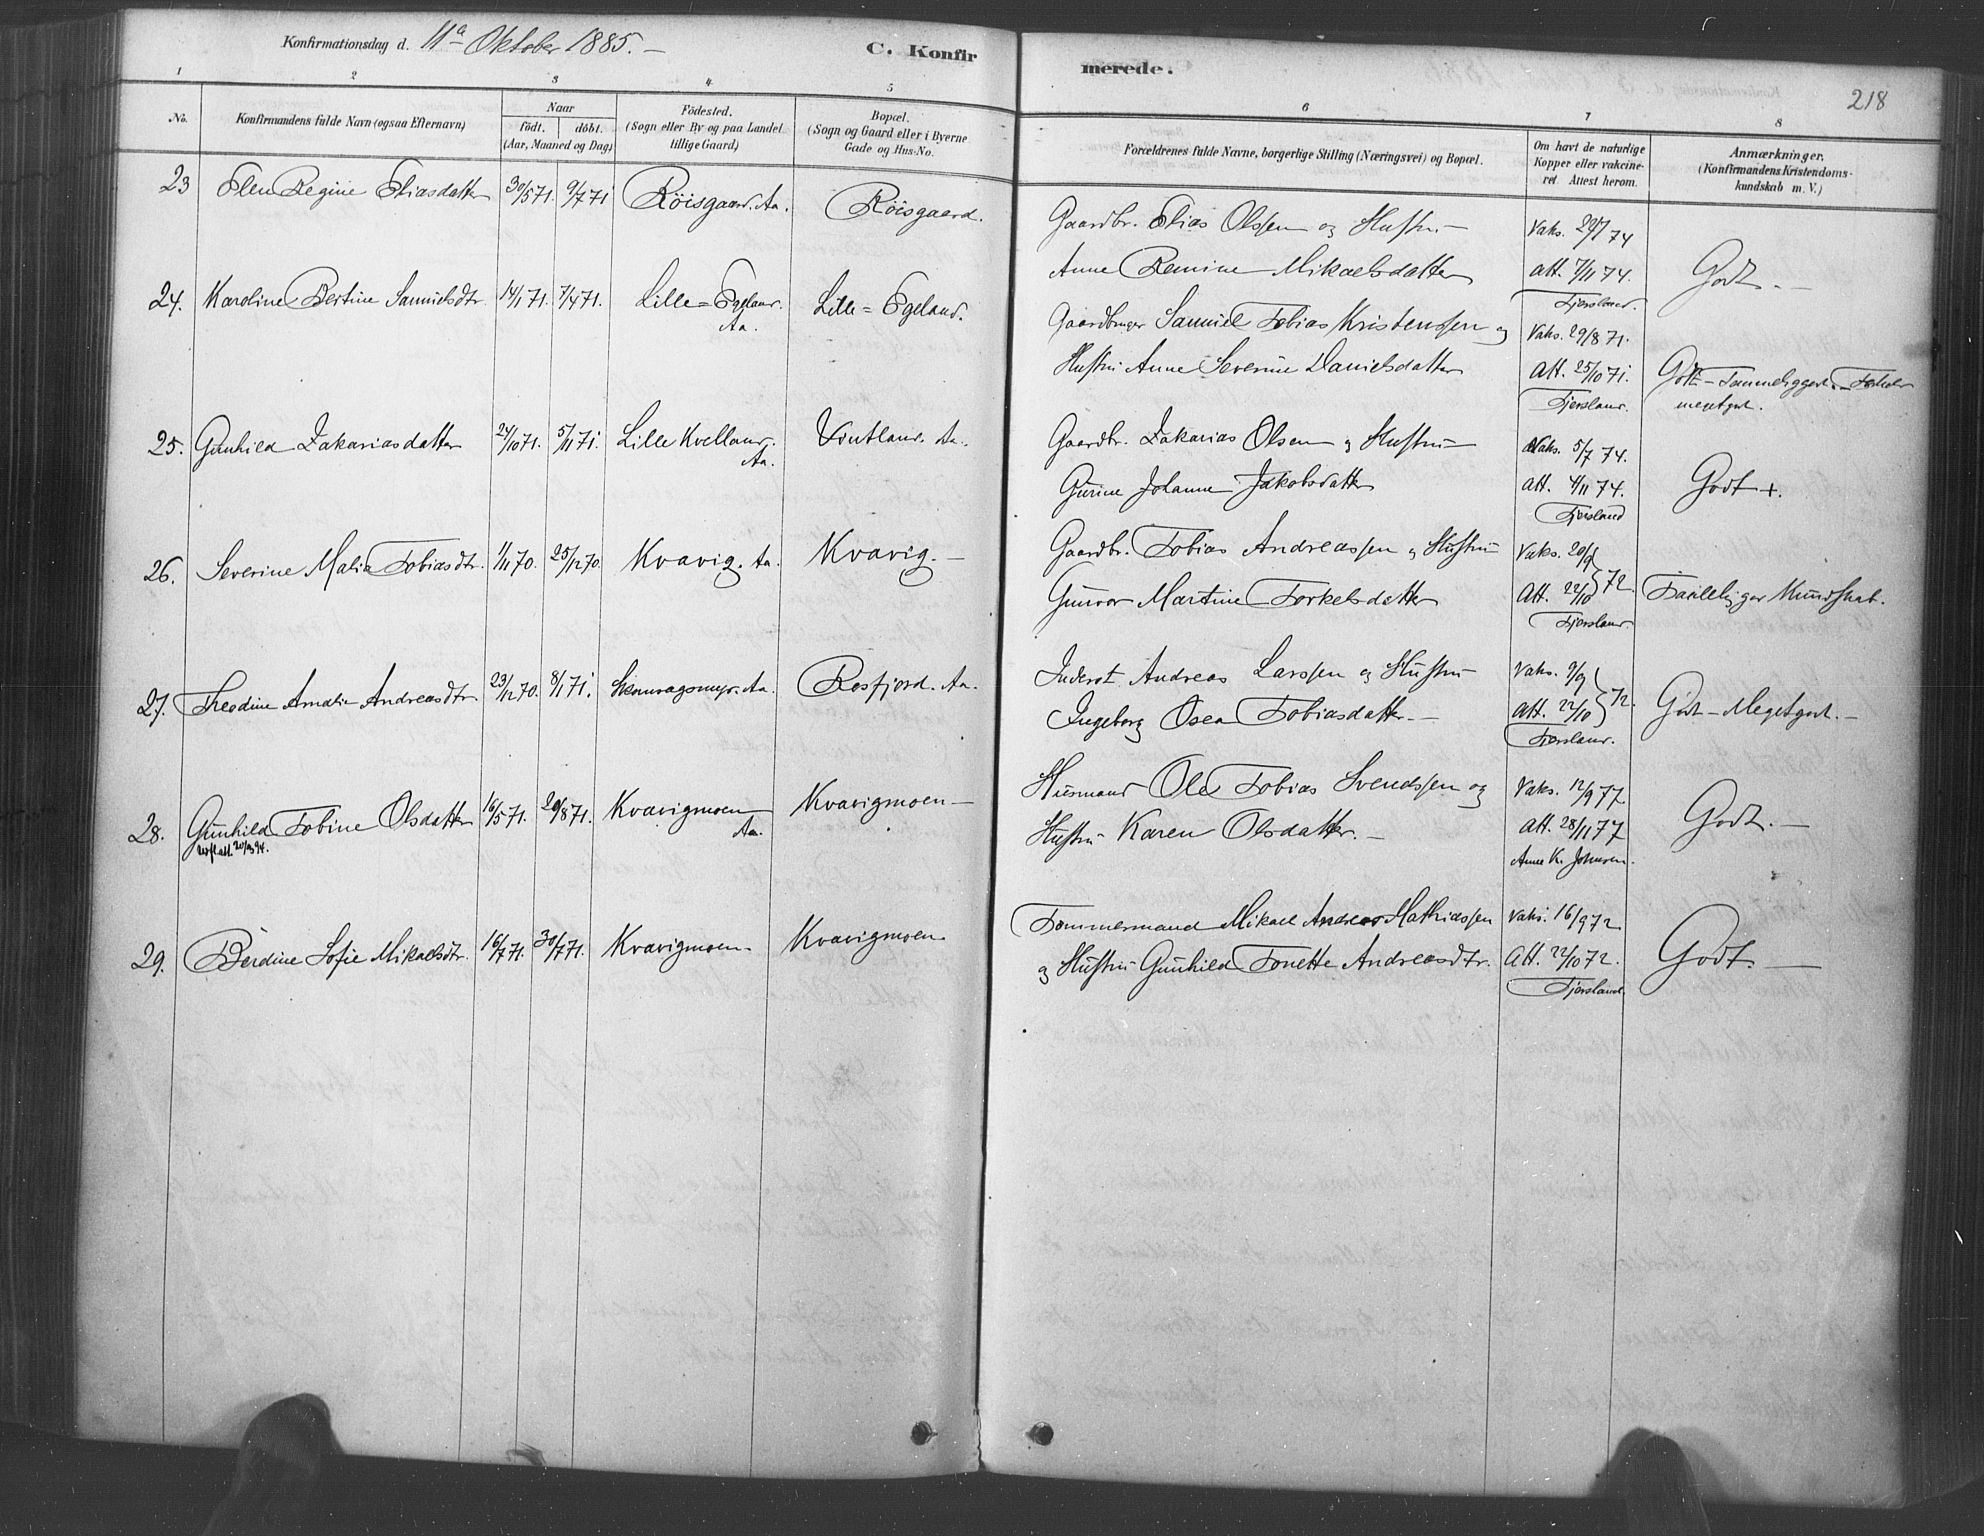 Konfirmationsdag d. 11te Oktober 1885. —
C. Konfirmerede.
218
1 2 3 4 5 6 7 8
No.
Konfirmandens fulde Navn (ogsaa Efternavn)
Naar
födt. döbt.
(Aar, Maaned og Dag)
Födested.
(Sogn eller By og paa Landet
tillige Gaard)
Bopæl.
(Sogn og Gaard eller i Byerne
Gade og Hus-No.
Forældrenes fulde Navne, borgerlige Stilling (Næringsvei) og Bopæl.
Om havt de naturlige
Kopper eller vakcine-
ret Attest herom.
Anmærkninger.
(Konfirmandens Kristendoms-
kundskab m. V.)
23 Elen Regine Eliasdatter 30/5 71. 9/7 71 Röisgaard. Aa. Röisgaard.
Gaardbr. Elias Olssen og Hustru — Vaks. 74
Anne Remine Mikaelsdatter att. 7/11 74. Godt. —
Fjersland.
24. Karoline Bertine Samuelsdtr. 14/1 71. 7/4 71. Lille=Egeland. Aa. Lille=Egeland.
Gaardbruger Samuel Tobias Kristenssen og Vaks. 29/8 71.
Hustru Anne Severine Danielsdatter Att. 25/10 71. Godt —
Fjersland. megetgodt.
25. Gunhild Zakariasdatter 24/10 71. 5/11 71. Lille Kvelland. Aa. Vintland. Aa.
Gaardbr. Zakarias Olsen og Hustru — Vaks. 5/7 74.
Gurine Johanne Jakobsdatter att. 4/11 74. Godt +.
Fjersland
26. Severine Malia Tobiasdtr. 1/11 70. 25/12 70. Kvavig. Aa. Kvavig. —
Gaardbr. Tobias Andreassen og Hustru — Vaks. 20/9
Gunvor Martine Torkelsdatter Att. 22/10 } 72. Taalelig god Kundskab.
Fjersland.
27. Theodine Amalie Andreasdtr. 23/12 70. 8/1 71. Skomragsmyr. Aa. Rosfjord. Aa.
Inderst Andreas Larssen og Hustru Vaks. 9/9
Ingeborg Osea Tobiasdatter. — att. 22/10 } 72. Godt — Megetgodt. —
Fjersland.
28. Gunhild Tobine Olsdatter 16/5 71. 20/8 71. Kvavigmoen Aa. Kvavigmoen —
Husmand Ole Tobias Svendssen og Vaks. 12/9 77
Hustru Karen Olsdatter. — Att. 28/11 77 Godt. —
Anne K. Johnsen.
29. Berdine Sofie Mikaelsdtr. 16/7 71. 30/7 71. Kvavigmoen. Kvavigmoen
Tommermand Mikael Andreas Mathiassen Vaks. 16/9 72
og Hustru Gunhild Tonette Andreasdtr. Att. 22/10 72. Godt. —
Fjersland.